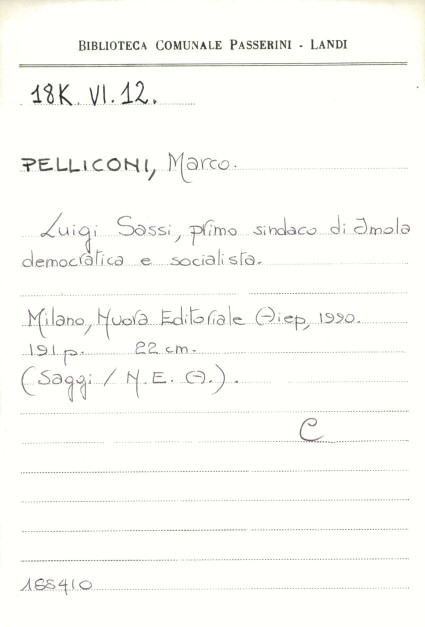 BIBLIOTECA COMUNALE PASSERINI - LANDI
18K. VI. 12.
PELLICONI, Marco.
Luigi Sassi, primo sindaco di Imola
democratica e socialista.
Milano, Nuova Editoriale Aiep, 1990.
191 p. 22 cm.
(Saggi / N. E. A.).
C
165410